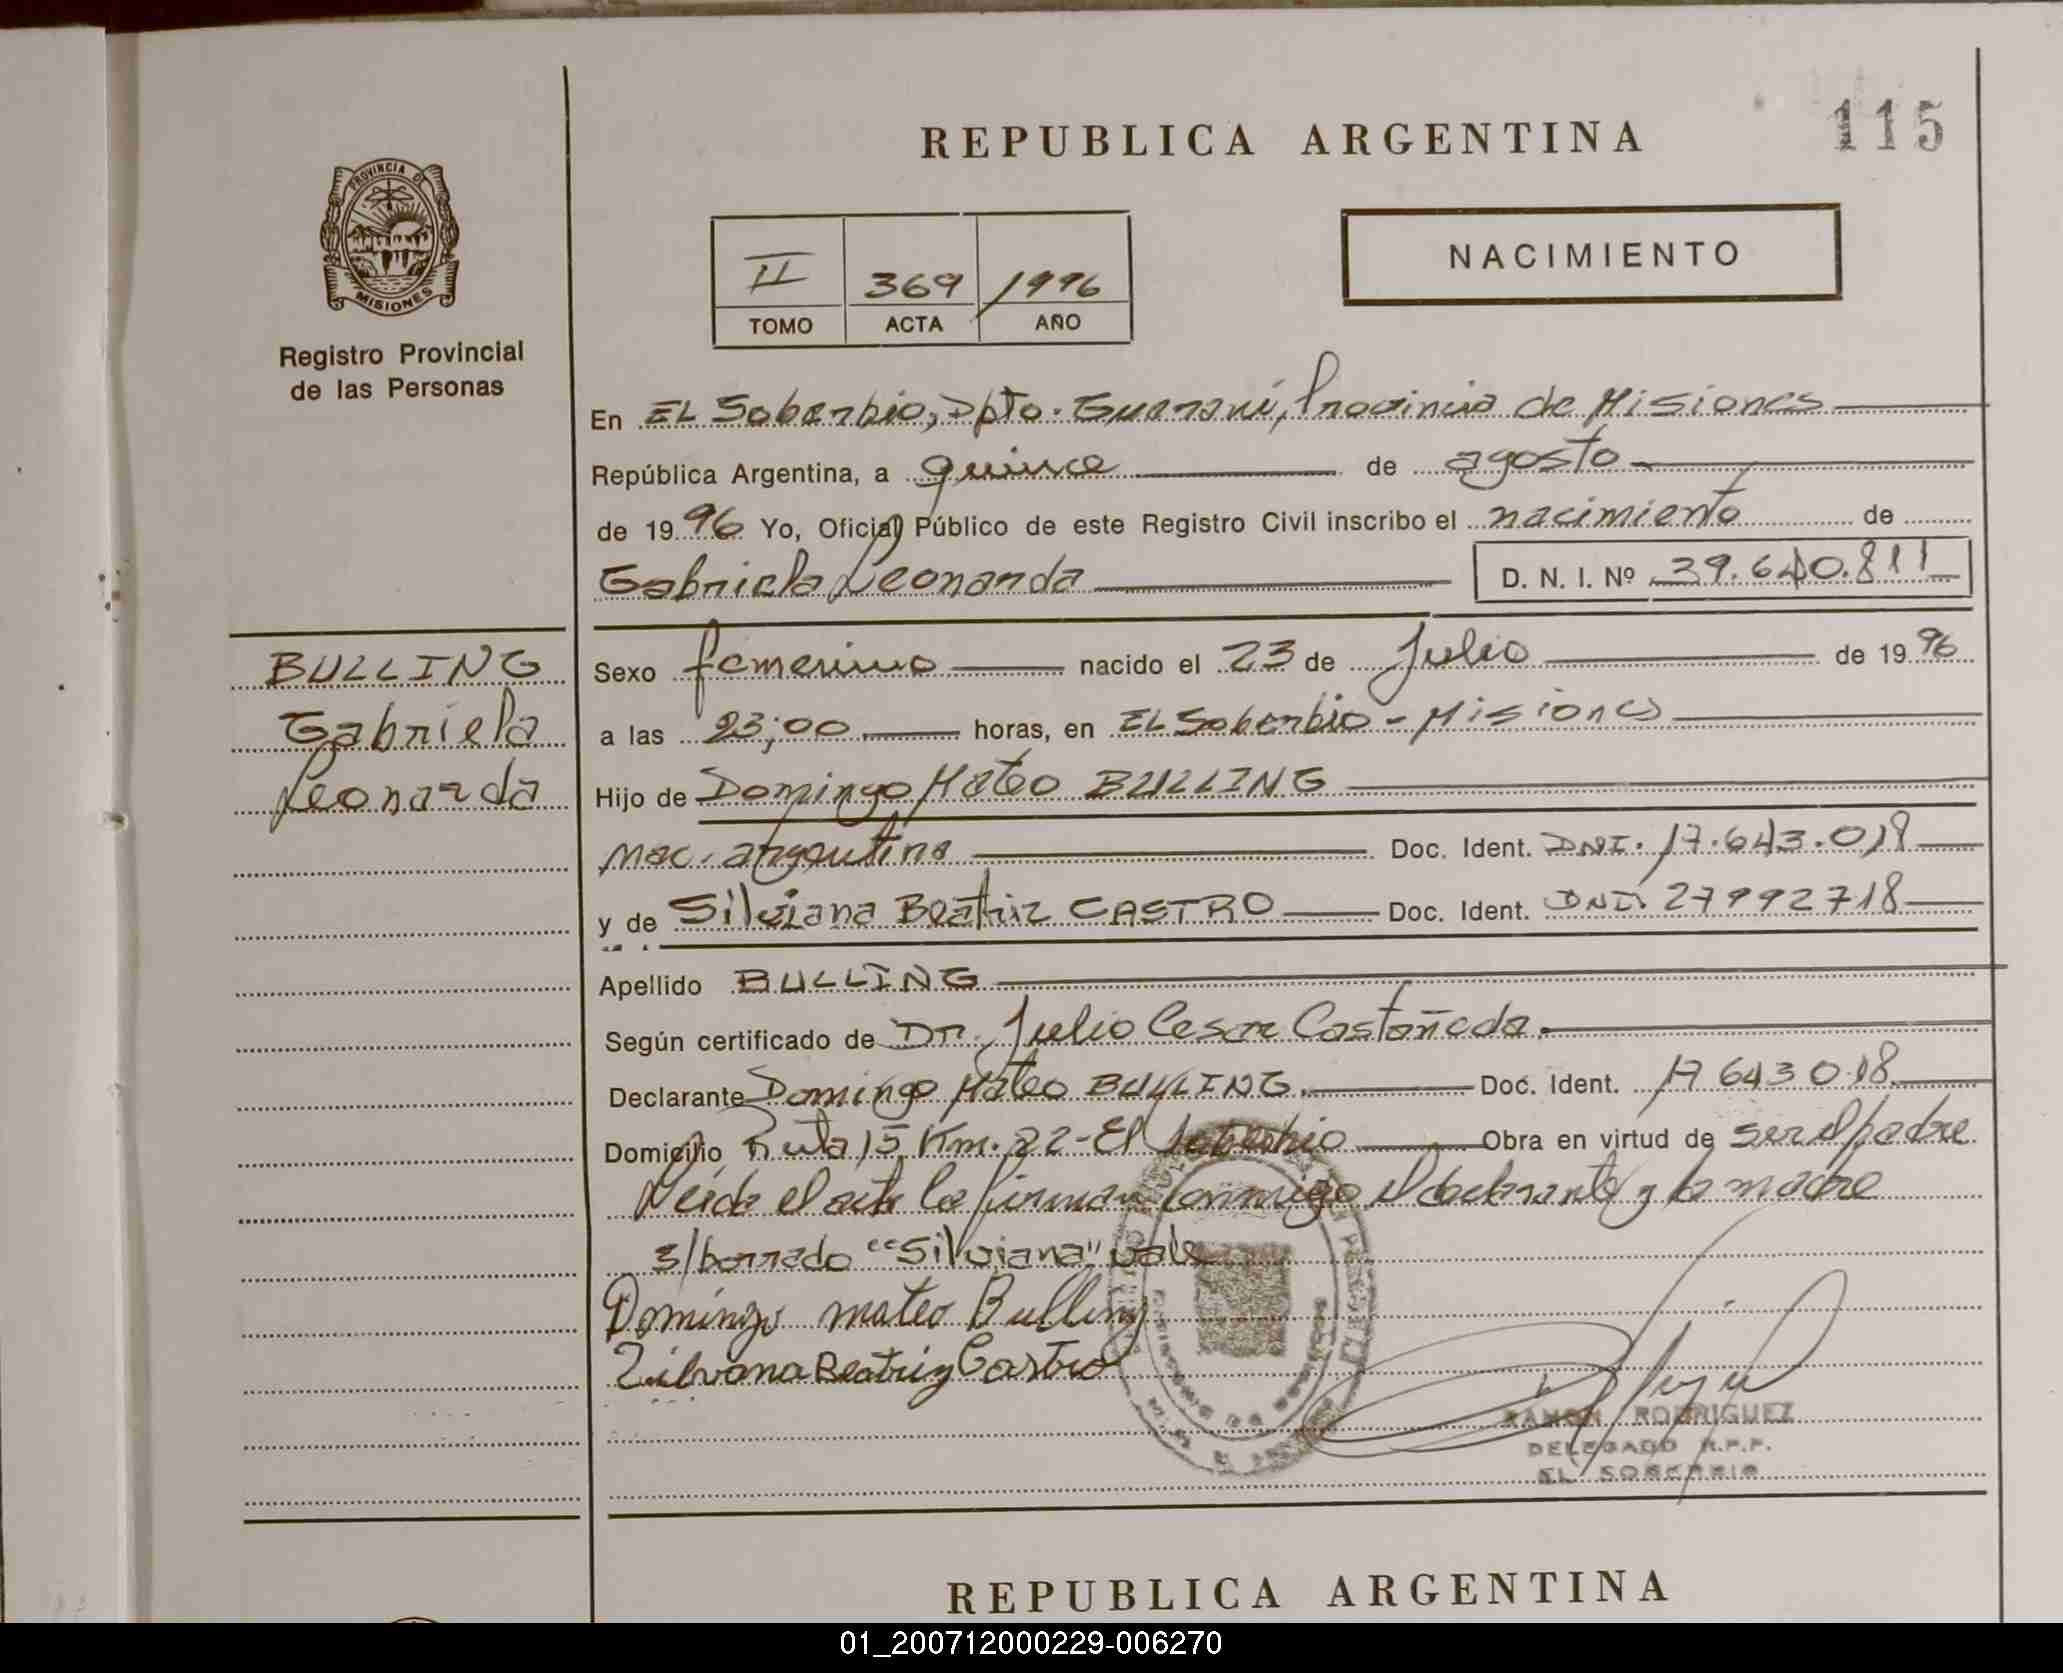 REPUBLICA ARGENTINA
115
PROVINCIA DE
MISIONES
Registro Provincial
de las Personas
II 369 1996
TOMO ACTA AÑO
NACIMIENTO
En EL Soberbio, Dpto. Guaraní, Provincia de Misiones
República Argentina, a quince de agosto
de 1996 Yo, Oficial Público de este Registro Civil inscribo el nacimiento de
Gabriela Leonarda D. N. I. Nº 39.640.811
BULLING
Gabriela
Leonarda
Sexo femenino nacido el 23 de Julio de 1996
a las 23;00 horas, en EL Soberbio - Misiones
Hijo de Domingo Mateo BULLING
nac. argentina Doc. Ident. DNI. 17.643.018
y de Silviana Beatriz CASTRO Doc. Ident. DNI. 27992718
Apellido BULLING
Según certificado de Dr. Julio Cesar Castañeda.
Declarante Domingo Mateo BULLING. Doc. Ident. 17 643 018
Domicilio Ruta 15 Km. 22 - El Soberbio Obra en virtud de ser el padre
Leida el acta la firman conmigo el declarante y la madre
s/borrado "Silviana" vale
Domingo mateo Bulling
Zilvana Beatriz Castro
RAMON RODRIGUEZ
DELEGADO R.P.P.
EL SOBERBIO
REPUBLICA ARGENTINA
01_200712000229-006270